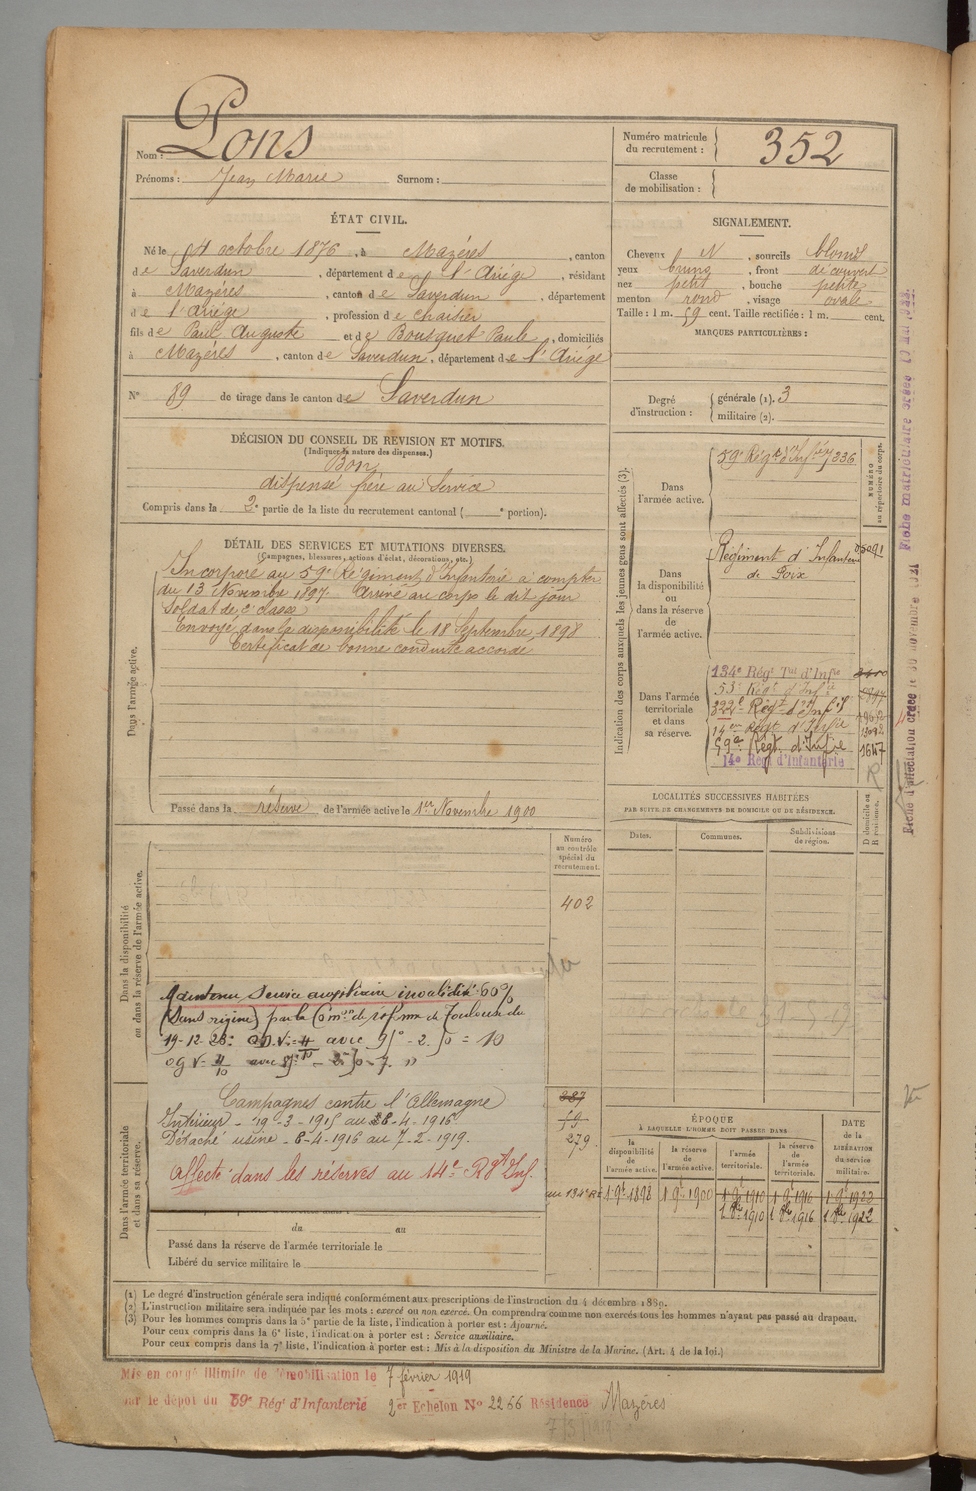 Nom : Pons
Prénoms : Jean Marie Surnom :
Numéro matricule du recrutement : 352
Classe de mobilisation :
ÉTAT CIVIL.
Né le 4 octobre 1876, à Mazéres, canton
de Saverdun, département de l'Ariége, résidant
à Mazéres, canton de Saverdun, département
de l'Ariége, profession de chaisier
fils de Paul Auguste et de Bousquet Paule, domiciliés
à Mazéres, canton de Saverdun, département de l'Ariége
N° 89 de tirage dans le canton de Saverdun
SIGNALEMENT.
Cheveux N, sourcils blond
yeux bruns, front découvert
nez petit, bouche petite
menton rond, visage ovale
Taille : 1 m. 59 cent. Taille rectifiée : 1 m. cent.
MARQUES PARTICULIÈRES :
Degré d'instruction : générale (1). 3
militaire (2).
DÉCISION DU CONSEIL DE RÉVISION ET MOTIFS.
(Indiquer la nature des dispenses.)
Bon
dispensé frère au Service
Compris dans la 2e partie de la liste du recrutement cantonal ( e portion).
DÉTAIL DES SERVICES ET MUTATIONS DIVERSES.
(Campagnes, blessures, actions d'éclat, décorations, etc.)
Dans l'armée active.
Incorporé au 59e Régiment d'Infanterie à compter
du 13 Novembre 1897. Arrivé au corps le dit jour
Soldat de 2e classe
Envoyé dans la disponibilité le 18 Septembre 1898
Certificat de bonne conduite accordé
Passé dans la réserve de l'armée active le 1er Novembre 1900
Indication des corps auxquels les jeunes gens sont affectés (3).
NUMÉRO au répertoire du corps.
Dans l'armée active.
59e Régt d'Infie 7236
Dans la disponibilité ou dans la réserve de l'armée active.
Régiment d'Infanterie
de Foix
Dans l'armée territoriale et dans sa réserve.
134e Régt Tal d'Infie
53e Régt d'Infie
322e Régt d'Inf
14e Régt d'Infie 13092
59e Régt d'Infie 1647
14e Régt d'Infanterie
LOCALITÉS SUCCESSIVES HABITÉES
PAR SUITE DE CHANGEMENTS DE DOMICILE OU DE RÉSIDENCE.
Dates. Communes. Subdivisions de région. D domicile ou R résidence.
Dans la disponibilité ou dans la réserve de l'armée active.
Numéro au contrôle spécial du recrutement.
402
Maintenu Service auxiliaire invalidité 60%
par la Comon de réforme de Toulouse du
19-12-28
Campagnes contre l'Allemagne
Intérieur - 19-3-1915 au 8-4-1916.
Détaché usine - 8-4-1916 au 7-2-1919.
affecté dans les réserves au 14e Rgt Inf.
287
59
279
au 134e Rt
Dans l'armée territoriale et dans sa réserve.
du au
Passé dans la réserve de l'armée territoriale le
Libéré du service militaire le
ÉPOQUE
A LAQUELLE L'HOMME DOIT PASSER DANS
la disponibilité de l'armée active. la réserve de l'armée active. l'armée territoriale. la réserve de l'armée territoriale.
DATE de la LIBÉRATION du service militaire.
1 9e 1898 1 9e 1900 1 9e 1910 1 9e 1916 1 9e 1922
1 8bre 1910 1 8bre 1916 1 8bre 1922
(1) Le degré d'instruction générale sera indiqué conformément aux prescriptions de l'instruction du 4 décembre 1889.
(2) L'instruction militaire sera indiquée par les mots : exercé ou non exercé. On comprendra comme non exercés tous les hommes n'ayant pas passé au drapeau.
(3) Pour les hommes compris dans la 5e partie de la liste, l'indication à porter est : Ajourné.
Pour ceux compris dans la 6e liste, l'indication à porter est : Service auxiliaire.
Pour ceux compris dans la 7e liste, l'indication à porter est : Mis à la disposition du Ministre de la Marine. (Art. 4 de la loi.)
Mis en congé illimité de démobilisation le 7 février 1919
sur le dépôt du 59e Régt d'Infanterie 2e Echelon N° 2266 Résidence Mazéres